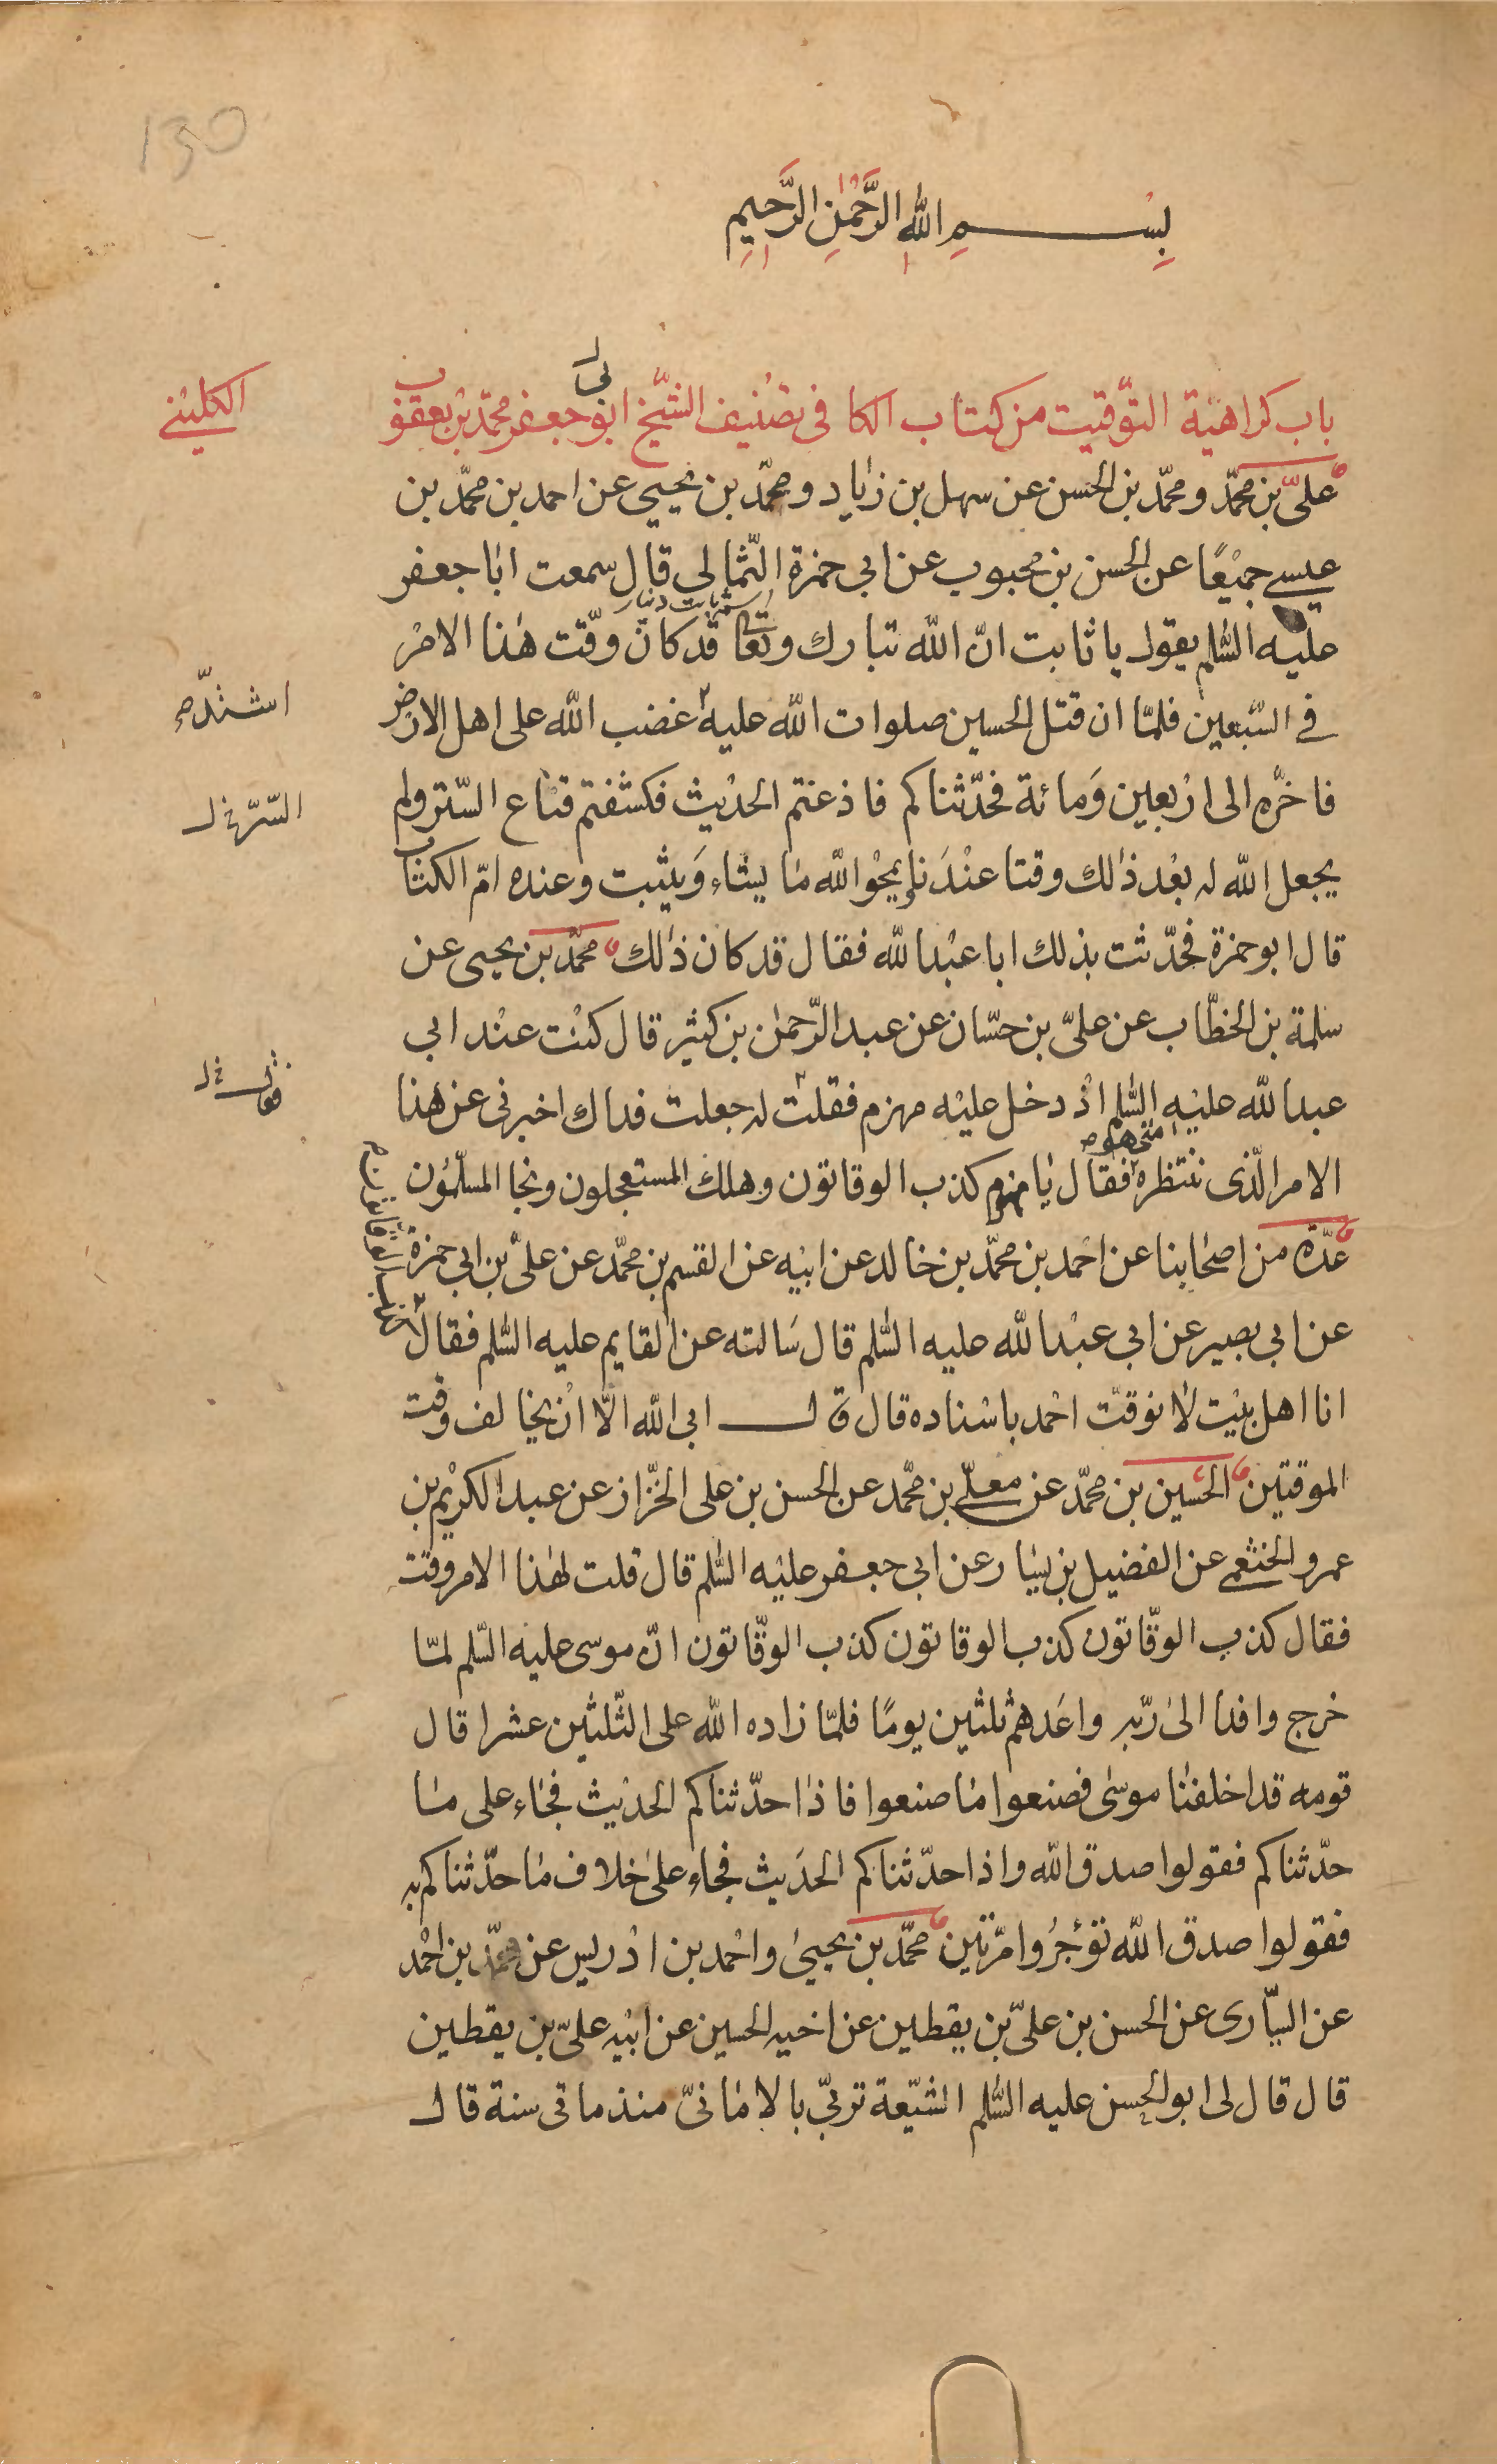 130
بِسْمِ اللهِ الرَّحْمٰنِ الرَّحِيمِ
باب كراهية التّوقيت من كتاب الكافى تصنيف الشّيخ ابو جعفر محمّد بن يعقوب
الكلينى
علىّ بن محمّد ومحمّد بن الحسن عن سهل بن زياد ومحمّد بن يحيى عن احمد بن محمّد بن
عيسى جميعًا عن الحسن بن محبوب عن ابى حمزة الثّمالى قال سمعت ابا جعفر
عليه السّلم يقول يا ثابت انّ الله تبارك وتعالى قد كان وقّت هذا الامر
فى السّبعين فلمّا ان قتل الحسين صلوات الله عليه غضب الله على اهل الارض
اشتدّ
فاخّره الى اربعين ومائة فحدّثناكم فاذعتم الحديث فكشفتم قناع السّتر ولم
السّرّ خ ل
يجعل الله له بعد ذلك وقتا عندنا يمحو الله ما يشاء ويثبت وعنده امّ الكتاب
قال ابو حمزة فحدّثت بذلك ابا عبد الله فقال قد كان ذلك محمّد بن يحيى عن
سلمة بن الخطّاب عن علىّ بن حسّان عن عبد الرّحمن بن كثير قال كنت عند ابى
عبد الله عليه السّلم اذ دخل عليه مهزم فقلت له جعلت فداك اخبرنى عن هذا
الامر الّذى ننتظره متى هو فقال يا مهزم كذب الوقاتون وهلك المستعجلون ونجا المسلّمون
عدّة من اصحابنا عن احمد بن محمّد بن خالد عن ابيه عن القسم بن محمّد عن علىّ بن ابى حمزة
عن ابى بصير عن ابى عبد الله عليه السّلم قال سالته عن القايم عليه السّلم فقال
كذب الوقاتون
انا اهل بيت لا نوقّت احمد باسناده قال قال ابى الله الّا ان يخالف وقت
الموقتين الحسين بن محمّد عن معلّى بن محمّد عن الحسن بن على الخزّاز عن عبد الكريم بن
عمرو الخثعمى عن الفضيل بن يسار عن ابى جعفر عليه السّلم قال قلت لهذا الامر وقت
فقال كذب الوقّاتون كذب الوقاتون كذب الوقّاتون انّ موسى عليه السّلم لمّا
خرج وافدا الى ربّه واعدهم ثلثين يومًا فلمّا زاده الله على الثّلثين عشرا قال
قومه قد اخلفنا موسى فصنعوا ما صنعوا فاذا حدّثناكم الحديث فجاء على ما
حدّثناكم فقولوا صدق الله واذا حدّثناكم الحديث فجاء على خلاف ما حدّثناكم به
فقولوا صدق الله تؤجروا مرّتين محمّد بن يحيى واحمد بن ادريس عن محمّد بن احمد
عن السّيّارى عن الحسن بن علىّ بن يقطين عن اخيه الحسين عن ابيه علىّ بن يقطين
قال قال لى ابو الحسن عليه السّلم الشّيعة تربّى بالامانىّ منذ ماتى سنة قال